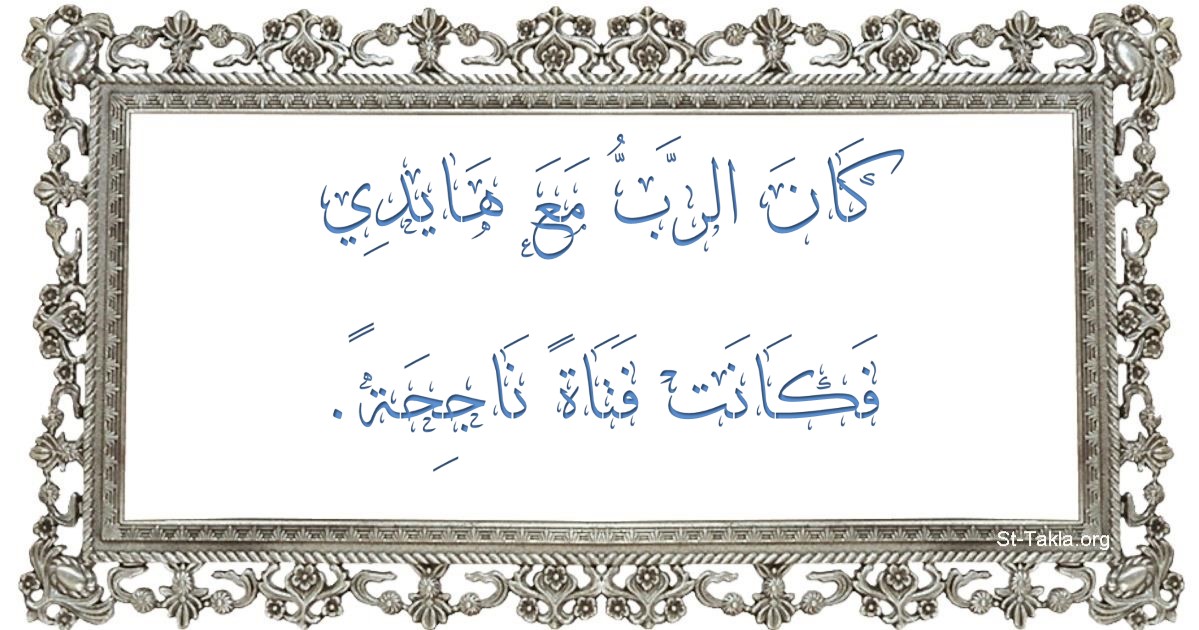 كَانَ الرَّبُّ مَعَ هَايدِي
فَكَانَت فَتَاةً نَاجِحَةً.
St-Takla.org